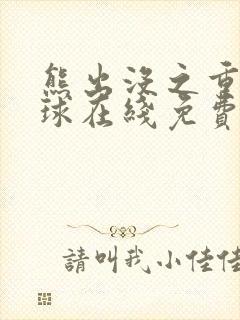 熊出没之重
球在线免費
請叫我小佳佳